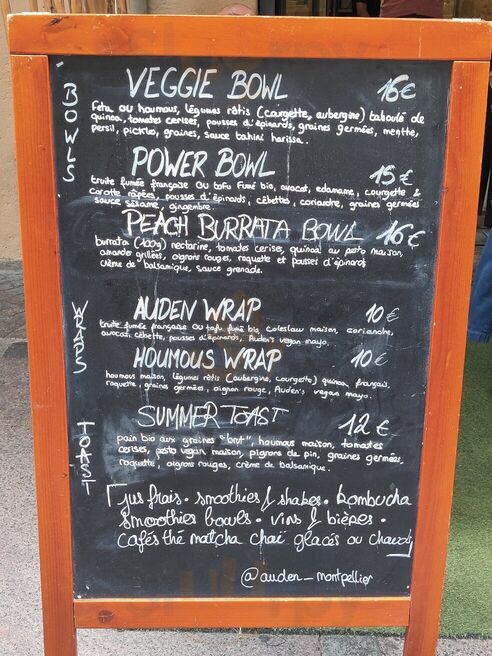 VEGGIE BOWL 16€
Feta ou houmous, légumes rôtis (courgette, aubergine) taboulé de
quinoa, tomates cerises, pousses d'épinards, graines germées, menthe,
persil, pickles, graines, sauce tahini harissa.
BOWLS
POWER BOWL 15€
truite fumée française ou tofu fumé bio, avocat, edamame, courgette &
carotte râpées, pousses d'épinards, cébettes, coriandre, graines germées
sauce sésame, gingembre.
PEACH BURRATA BOWL 16€
burrata (100g) nectarine, tomates cerises, quinoa au pesto maison,
amandes grillées, oignons rouges, roquette et pousses d'épinards
crème de balsamique, sauce grenade.
WRAPS
AUDEN WRAP 10€
truite fumée française ou tofu fumé bio, coleslaw maison, coriandre,
avocat, cébette, pousses d'épinards, Auden's vegan mayo.
HOUMOUS WRAP 10€
houmous maison, légumes rôtis (aubergine, courgette) quinoa français,
roquette, graines germées, oignon rouge, Auden's vegan mayo.
TOAST
SUMMER TOAST 12€
pain bio aux graines "brut", houmous maison, tomates
cerises, pesto vegan maison, pignons de pin, graines germées,
roquette, oignons rouges, crème de balsamique.
jus frais. smoothies & shakes. kombucha
smoothies bowls. vins & bières.
cafés thé matcha chaï glacés ou chauds
@auden_montpellier